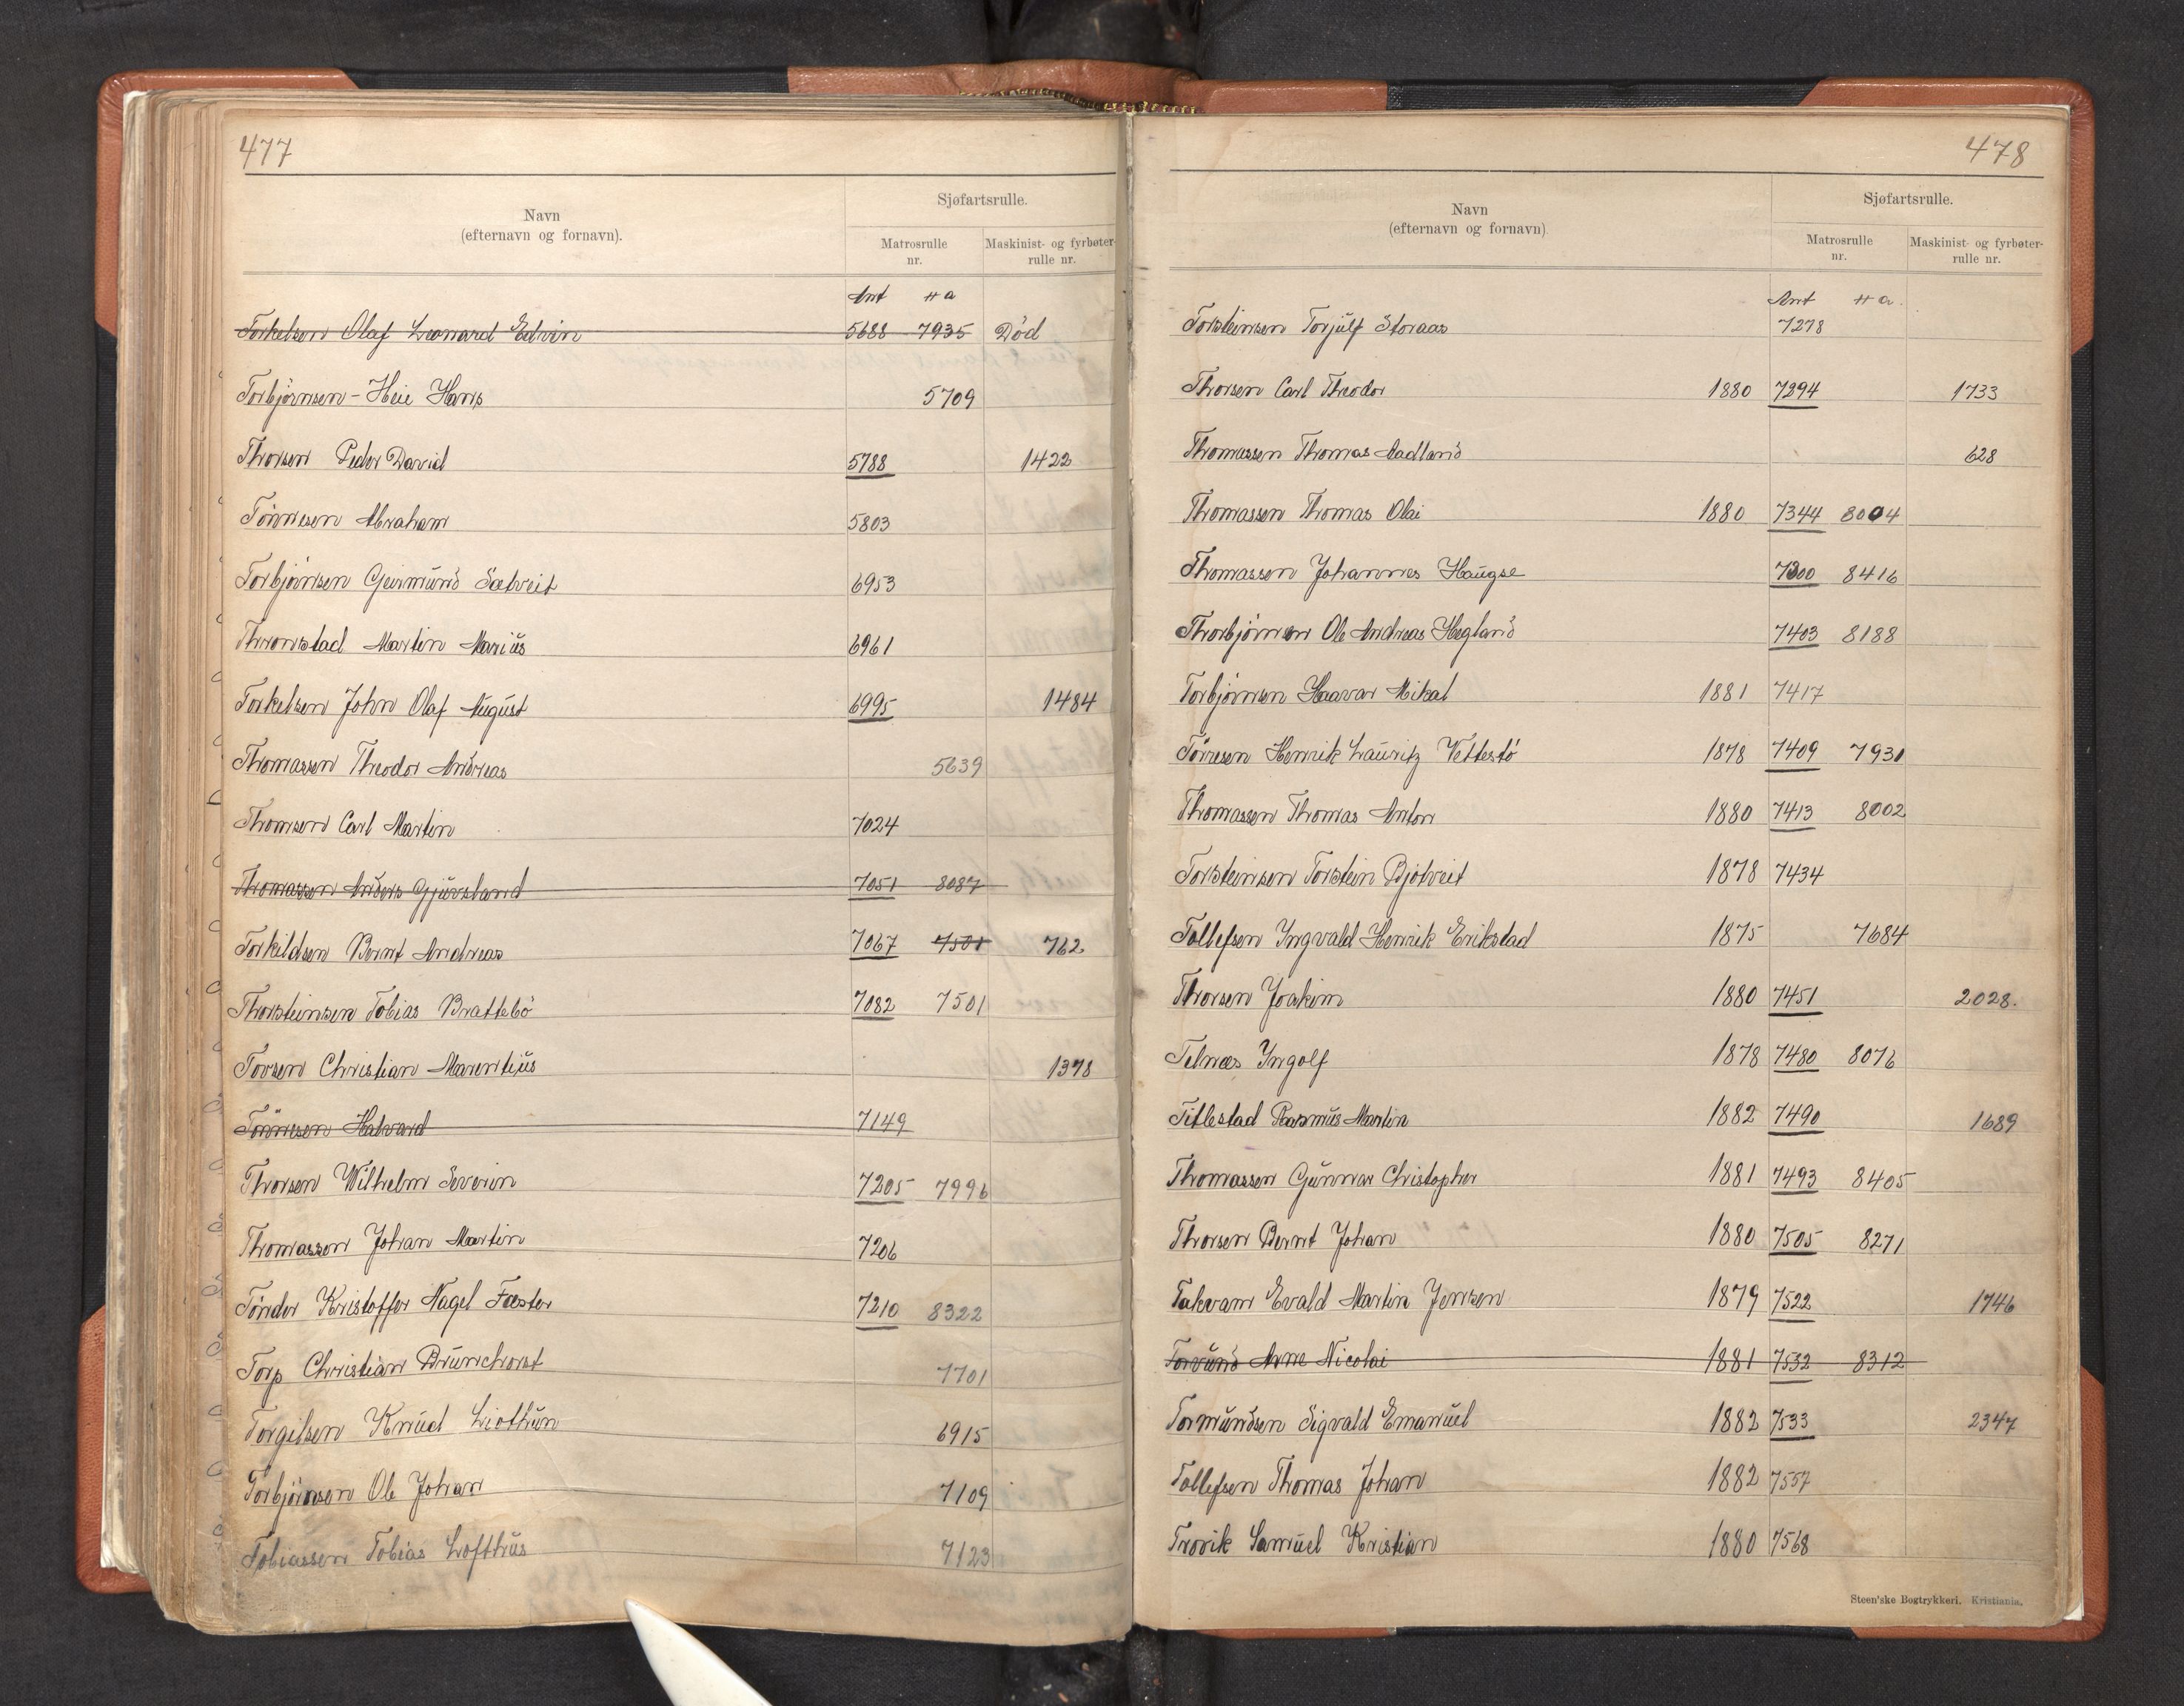 477
Navn
(efternavn og fornavn).
Sjøfartsrulle.
Matrosrulle nr.
Maskinist- og fyrbøter-rulle nr.
Ant H a
Torkelsen Olaf Leonard Edvin 5688 7935 Død
Torbjörnsen - Heie Hans 5709
Thorsen Peder David 5788 1422
Tönnesen Abraham 5803
Torbjörnsen Geirmund Sætveit 6953
Thronstad Martin Marius 6961
Torkelsen John Olaf August 6995 1484
Thomassen Theodor Andreas 5639
Thomsen Carl Martin 7024
Thomassen Anders Gjuvsland 7051 8087
Torkildsen Bernt Andreas 7067 7501 762
Thorsteinsen Tobias Brattebö 7082 7501
Tovsen Christian Marentius 1378
Tönnesen Halvard 7149
Thorsen Wilhelm Severin 7205 7996
Thomassen Johan Martin 7206
Tönder Kristoffer Nagel Fæster 7210 8322
Torp Christian Brunchorst 7701
Torgilsen Knud Liothun 6915
Torbjörnsen Ole Johan 7109
Tobiassen Tobias Lofthus 7123
478
Navn
(efternavn og fornavn)
Sjøfartsrulle.
Matrosrulle nr.
Maskinist- og fyrbøter-rulle nr.
Ant H a.
Torsteinsen Torjulf Storaas 7278
Thorsen Carl Theodor 1880 7294 1733
Thomassen Thomas Aadland 628
Thomassen Thomas Olai 1880 7344 8004
Thomassen Johannes Haugse 7300 8416
Thorbjörnsen Ole Andreas Hegland 7403 8188
Torbjörnsen Haavar Mikal 1881 7417
Törresen Henrik Lauritz Vettestö 1878 7409 7930
Thomassen Thomas Anton 1880 7413 8002
Torsteinsen Torstein Bjotveit 1878 7434
Tollefsen Yngvald Henrik Erikstad 1875 7684
Thorsen Joakim 1880 7451 2028.
Telnæs Yngolf 1878 7480 8076
Titlestad Rasmus Martin 1882 7490 1689
Thomassen Gunnar Christopher 1881 7493 8405
Thorsen Bernt Johan 1880 7505 8271
Takvam Evald Martin Jensen 1879 7522 1746
Torvund Arne Nicolai 1881 7532 8312
Tormundsen Sigvald Emanuel 1882 7533 2347
Tollefsen Thomas Johan 1882 7557
Trovik Samuel Kristian 1880 7568
Steen'ske Bogtrykkeri. Kristiania.